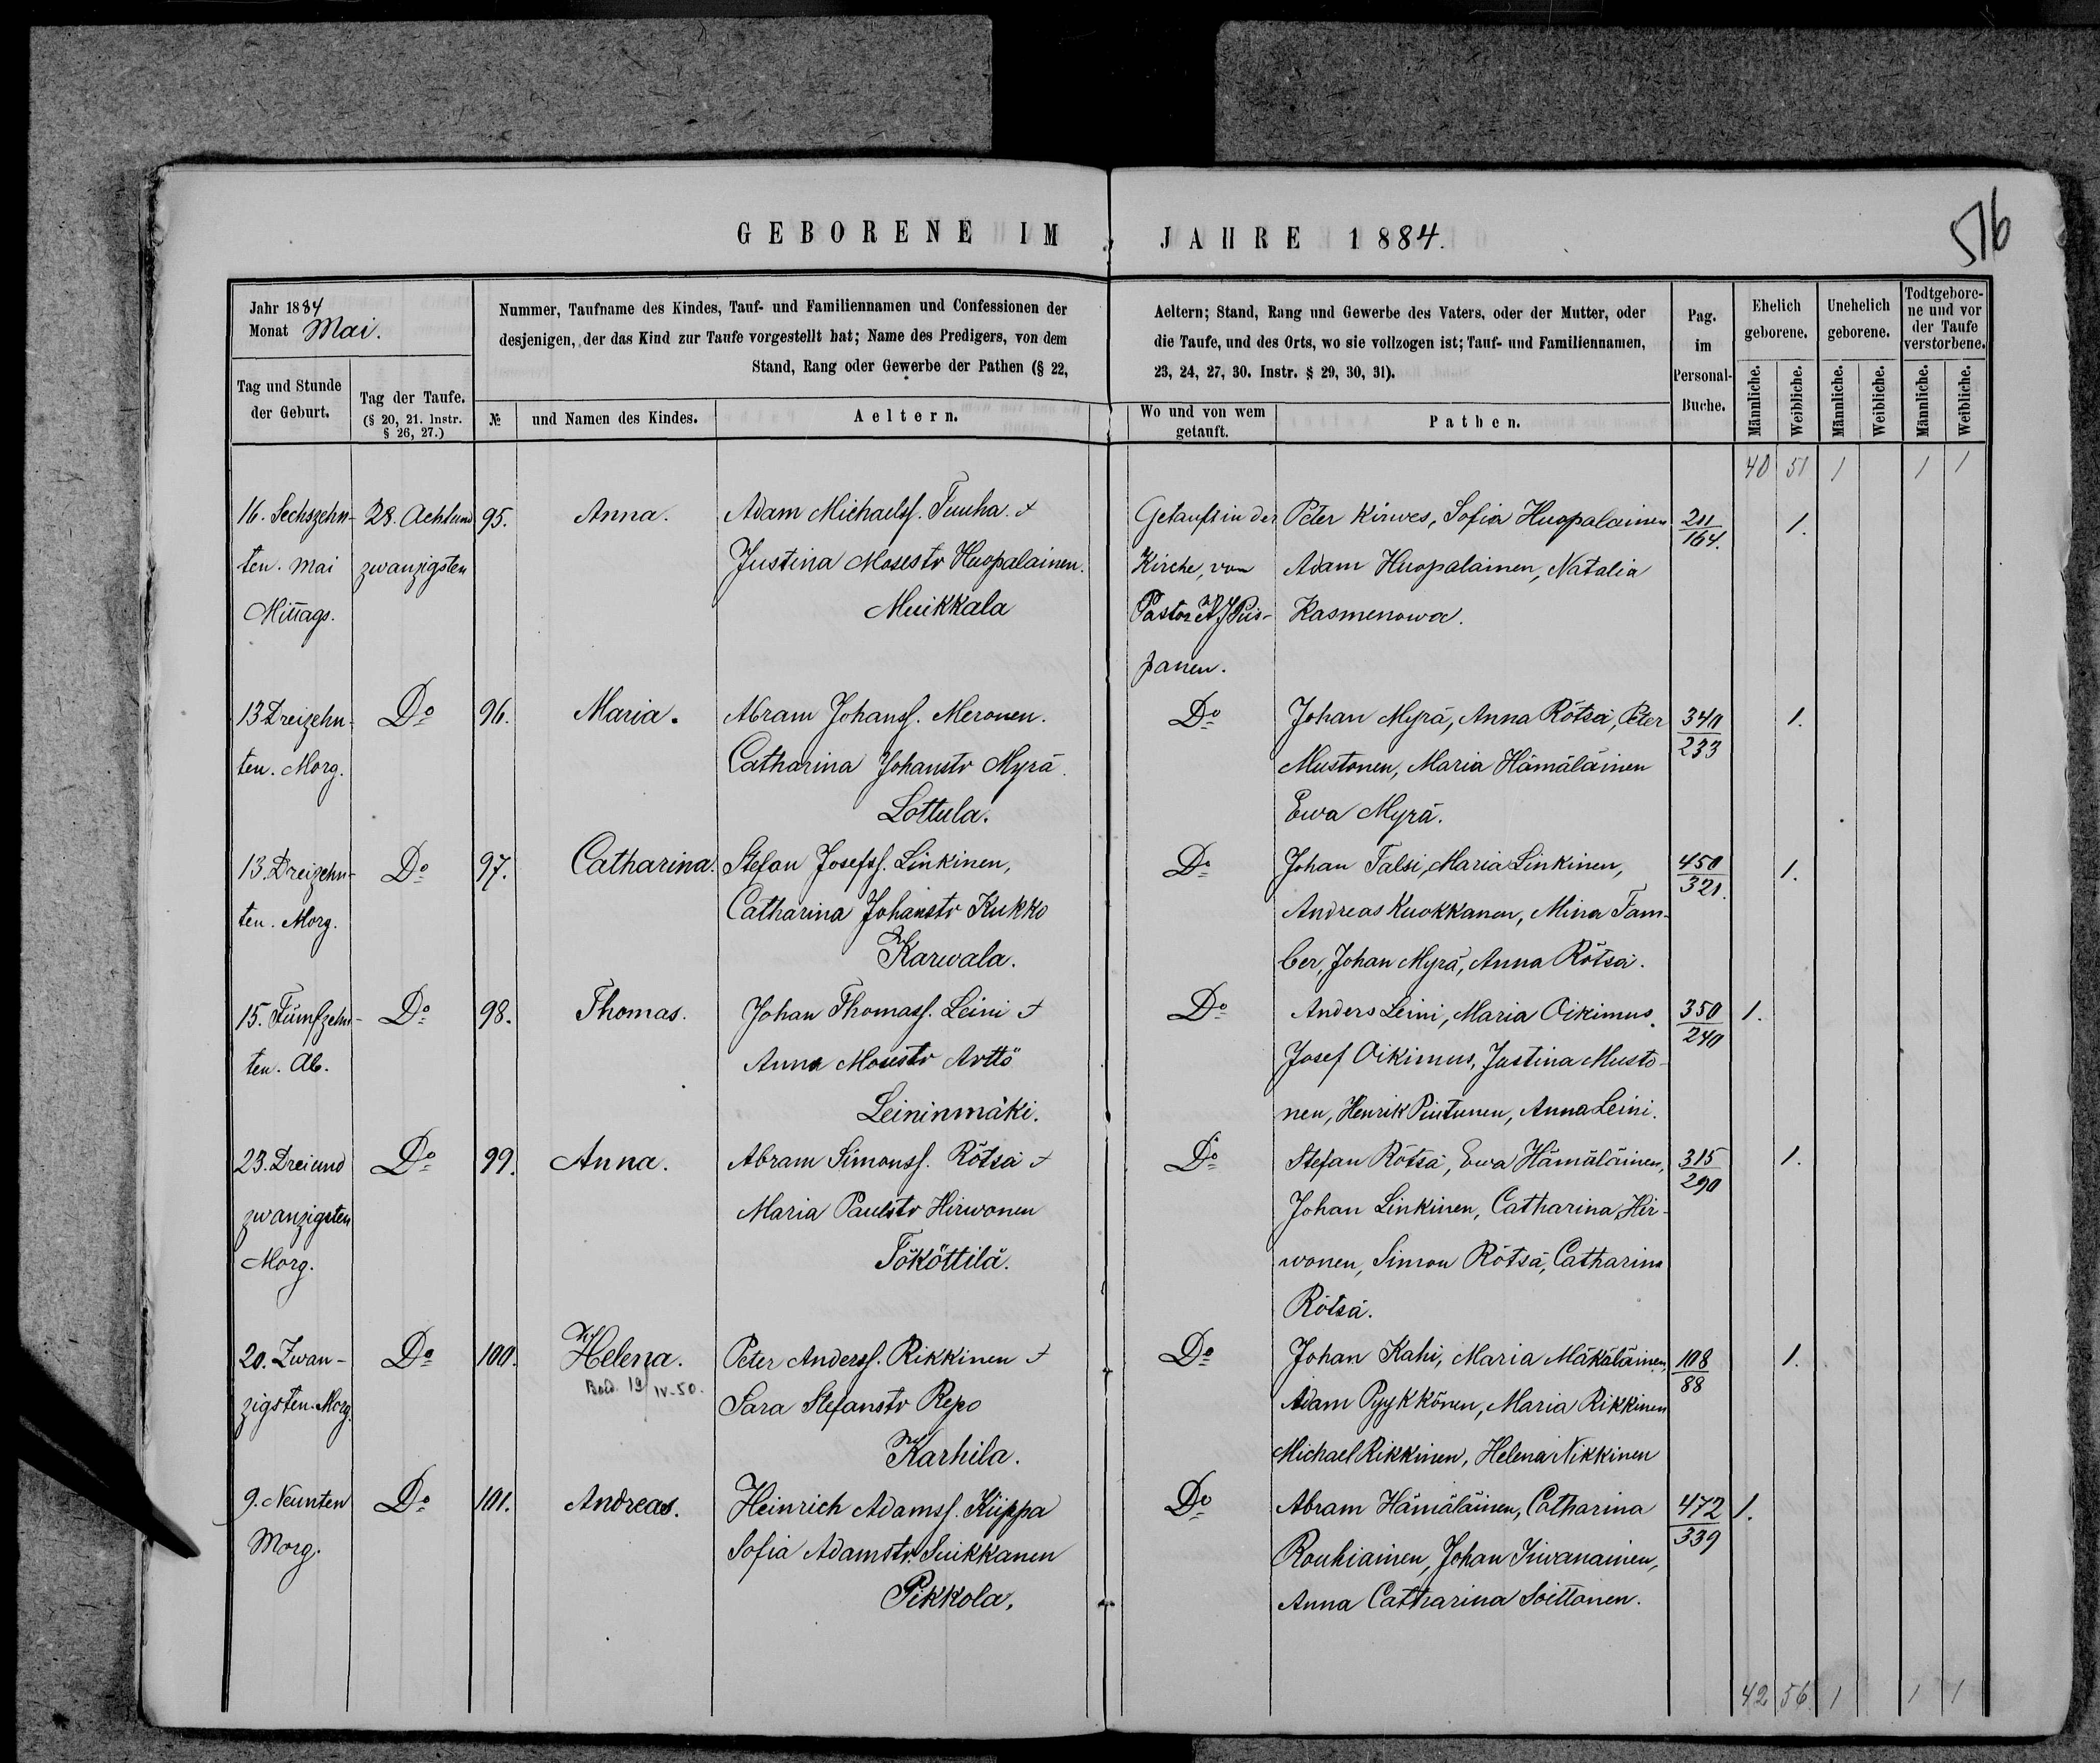 GEBORENE IM JAHRE 1884.
516
Jahr 1884
Monat Mai.
Nummer, Taufname des Kindes, Tauf- und Familiennamen und Confessionen der
desjenigen, der das Kind zur Taufe vorgestellt hat; Name des Predigers, von dem
Stand, Rang oder Gewerbe der Pathen (§ 22,
Aeltern; Stand, Rang und Gewerbe des Vaters, oder der Mutter, oder
die Taufe, und des Orts, wo sie vollzogen ist; Tauf- und Familiennamen,
23, 24, 27, 30. Instr. § 29, 30, 31).
Pag.
im
Personal-
Buche.
Ehelich
geborene.
Unehelich
geborene.
Todtgebore-
ne und vor
der Taufe
verstorbene.
Tag und Stunde
der Geburt.
Tag der Taufe.
(§ 20, 21. Instr.
§ 26, 27.)
№
und Namen des Kindes.
Aeltern.
Wo und von wem
getauft.
Pathen.
Männliche.
Weibliche.
Männliche.
Weibliche.
Männliche.
Weibliche.
40 51 1 1 1
16. Sechszehn- 28. Achtund 95. Anna. Adam Michaelss. Tuuha + Getauft in der Peter Kirwes, Sofia Huopalainen 211/164. 1.
ten. Mai zwanzigsten Justina Mosestr Huopalainen. Kirche, von Adam Huopalainen, Natalia
Mittags. Muikkala Pastor P. J. Puis- Kasmenowa.
panen.
13 Dreizehn- Do 96. Maria. Abram Johanss. Meronen. Do Johan Myrä, Anna Rötsä, Peter 340/233 1.
ten. Morg. Catharina Johanstr Myrä. Mustonen, Maria Hämäläinen
Lottula. Ewa Myrä.
13. Dreizehn- Do 97. Catharina. Stefan Josefss. Linkinen, Do Johan Talsi, Maria Linkinen, 450/321. 1.
ten. Morg. Catharina Johanstr Kukko Andreas Kuokkanen, Mina Tam-
Karwala. ber, Johan Myrä, Anna Rötsä.
15. Fünfzehn- Do 98. Thomas. Johan Thomass. Leini + Do Anders Leini, Maria Oikimus. 350/240 1.
ten. Ab. Anna Mosestr Arttö Josef Oikimus, Justina Musto-
Leininmäki. nen, Henrik Piutunen, Anna Leini.
23. Dreiund Do 99. Anna. Abram Simonss. Rötsä + Do Stefan Rötsä, Ewa Hämäläinen, 315/290 1.
zwanzigsten Maria Paulstr Hirwonen Johan Linkinen, Catharina Hir-
Morg. Tököttilä. wonen, Simon Rötsä, Catharina
Rötsä.
20. Zwan- Do 100. Helena. Peter Anderss. Rikkinen + Do Johan Kahi, Maria Mäkäläinen, 108/88 1.
19/IV-50.
zigsten. Morg. Sara Stefanstr Repo Adam Pyykkönen, Maria Rikkinen
Karhila. Michael Rikkinen, Helena Nikkinen
9. Neunten Do 101. Andreas. Heinrich Adamss. Kiippa Do Abram Hämäläinen, Catharina 472/339 1.
Morg. Sofia Adamstr Suikkanen Rouhiainen, Johan Iiwanainen,
Pikkola, Anna Catharina Soittonen.
42 56 1 1 1